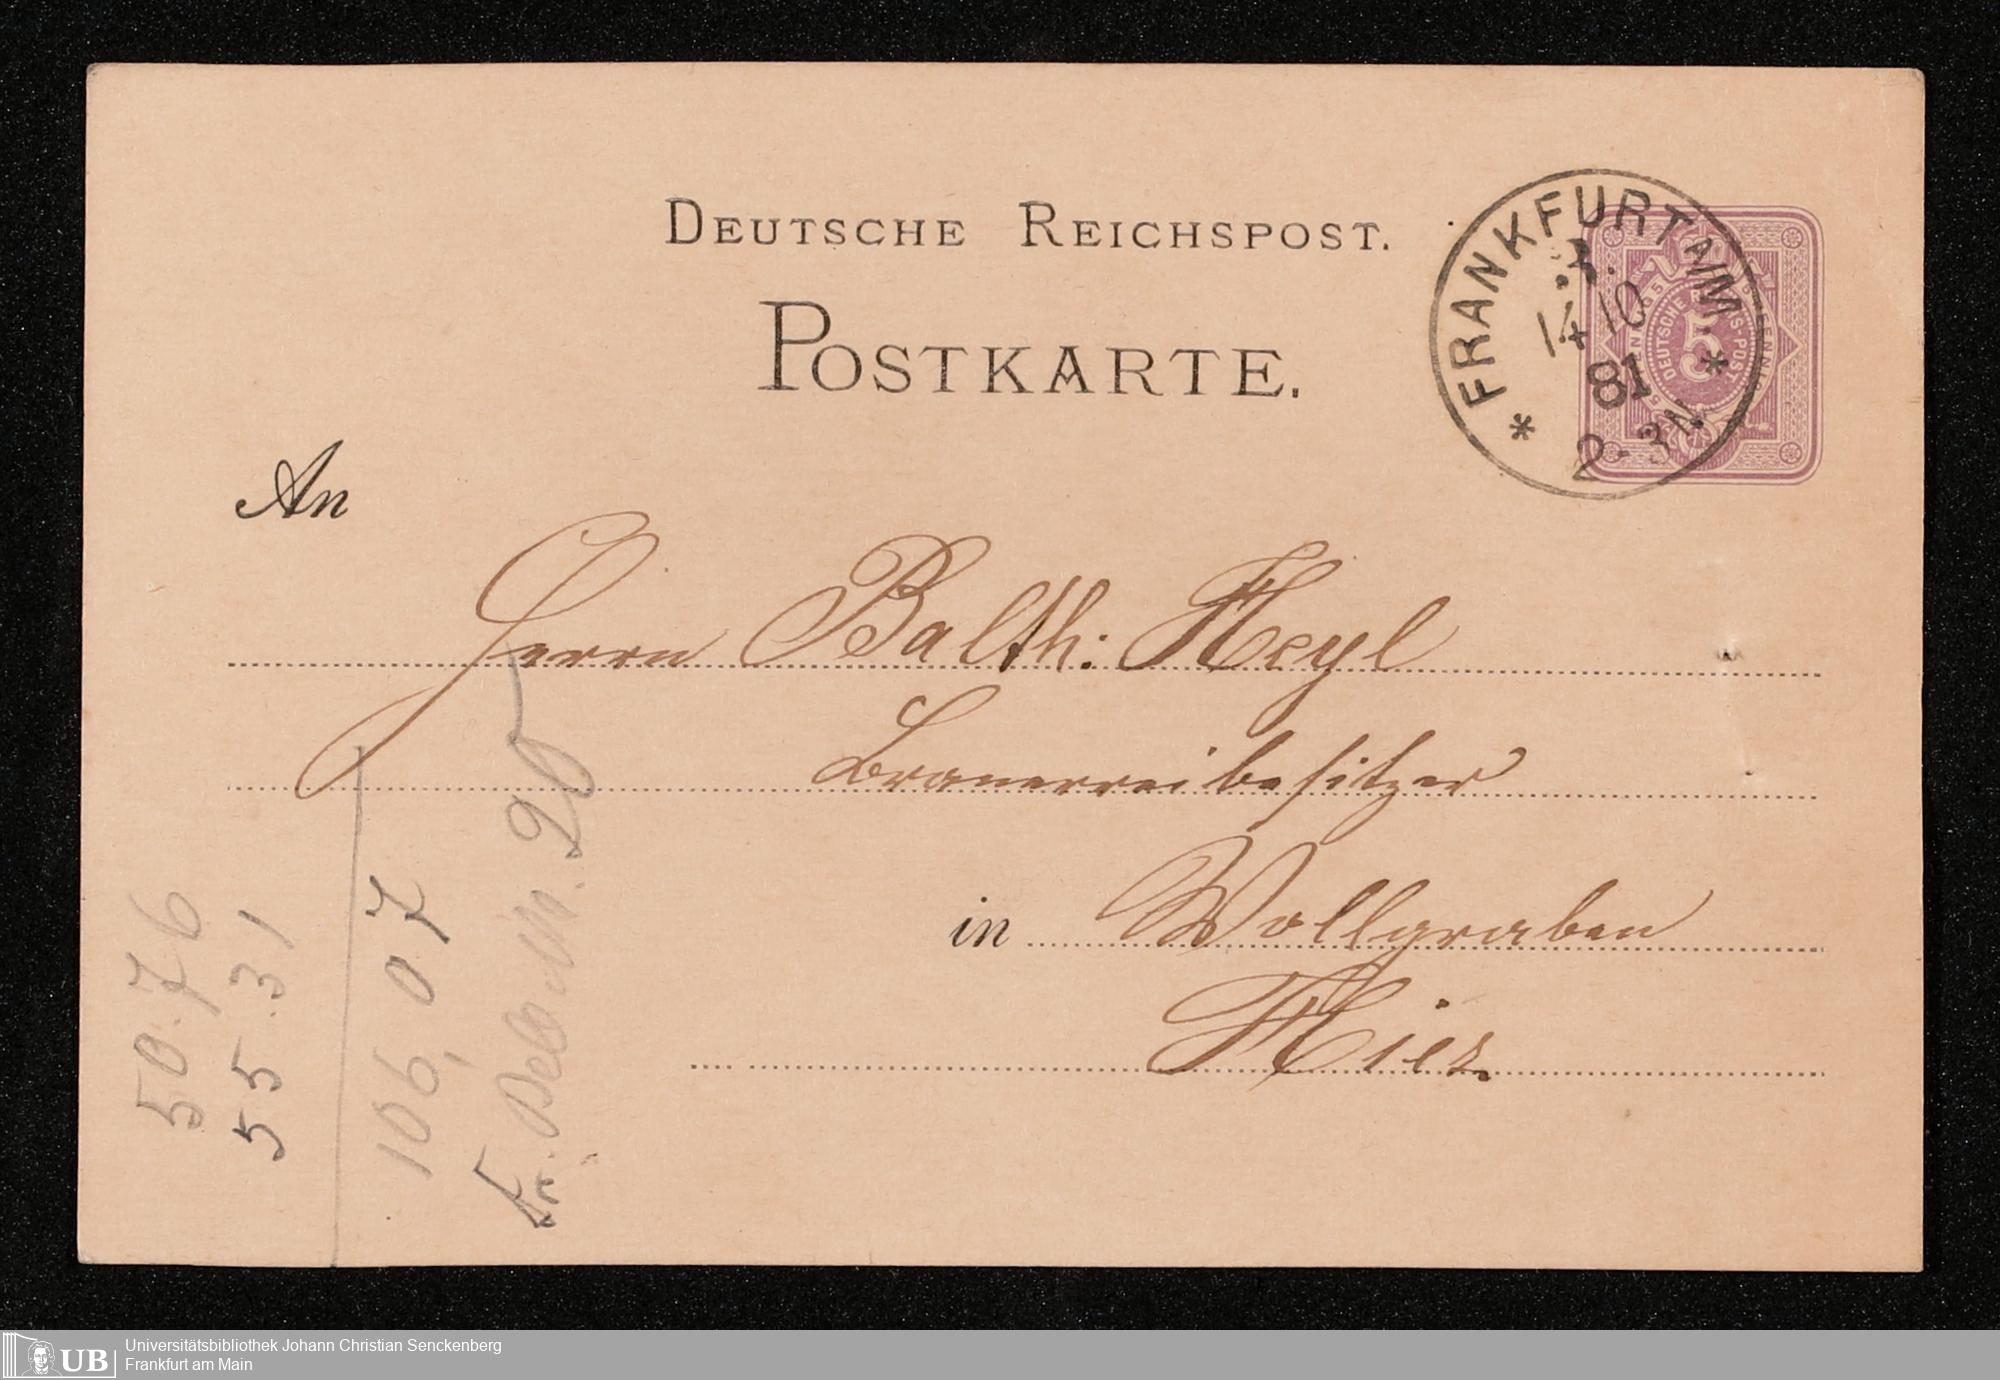 DEUTSCHE REICHSPOST.
POSTKARTE.
FRANKFURT A/M.
14 10
81
2-3N
DEUTSCHE REICHS-POST.
5
An
Herrn Balth: Heyl
Brauereibesitzer
in Wollgraben
Hier.
50.76
55.31
106,07
UB
Universitätsbibliothek Johann Christian Senckenberg
Frankfurt am Main